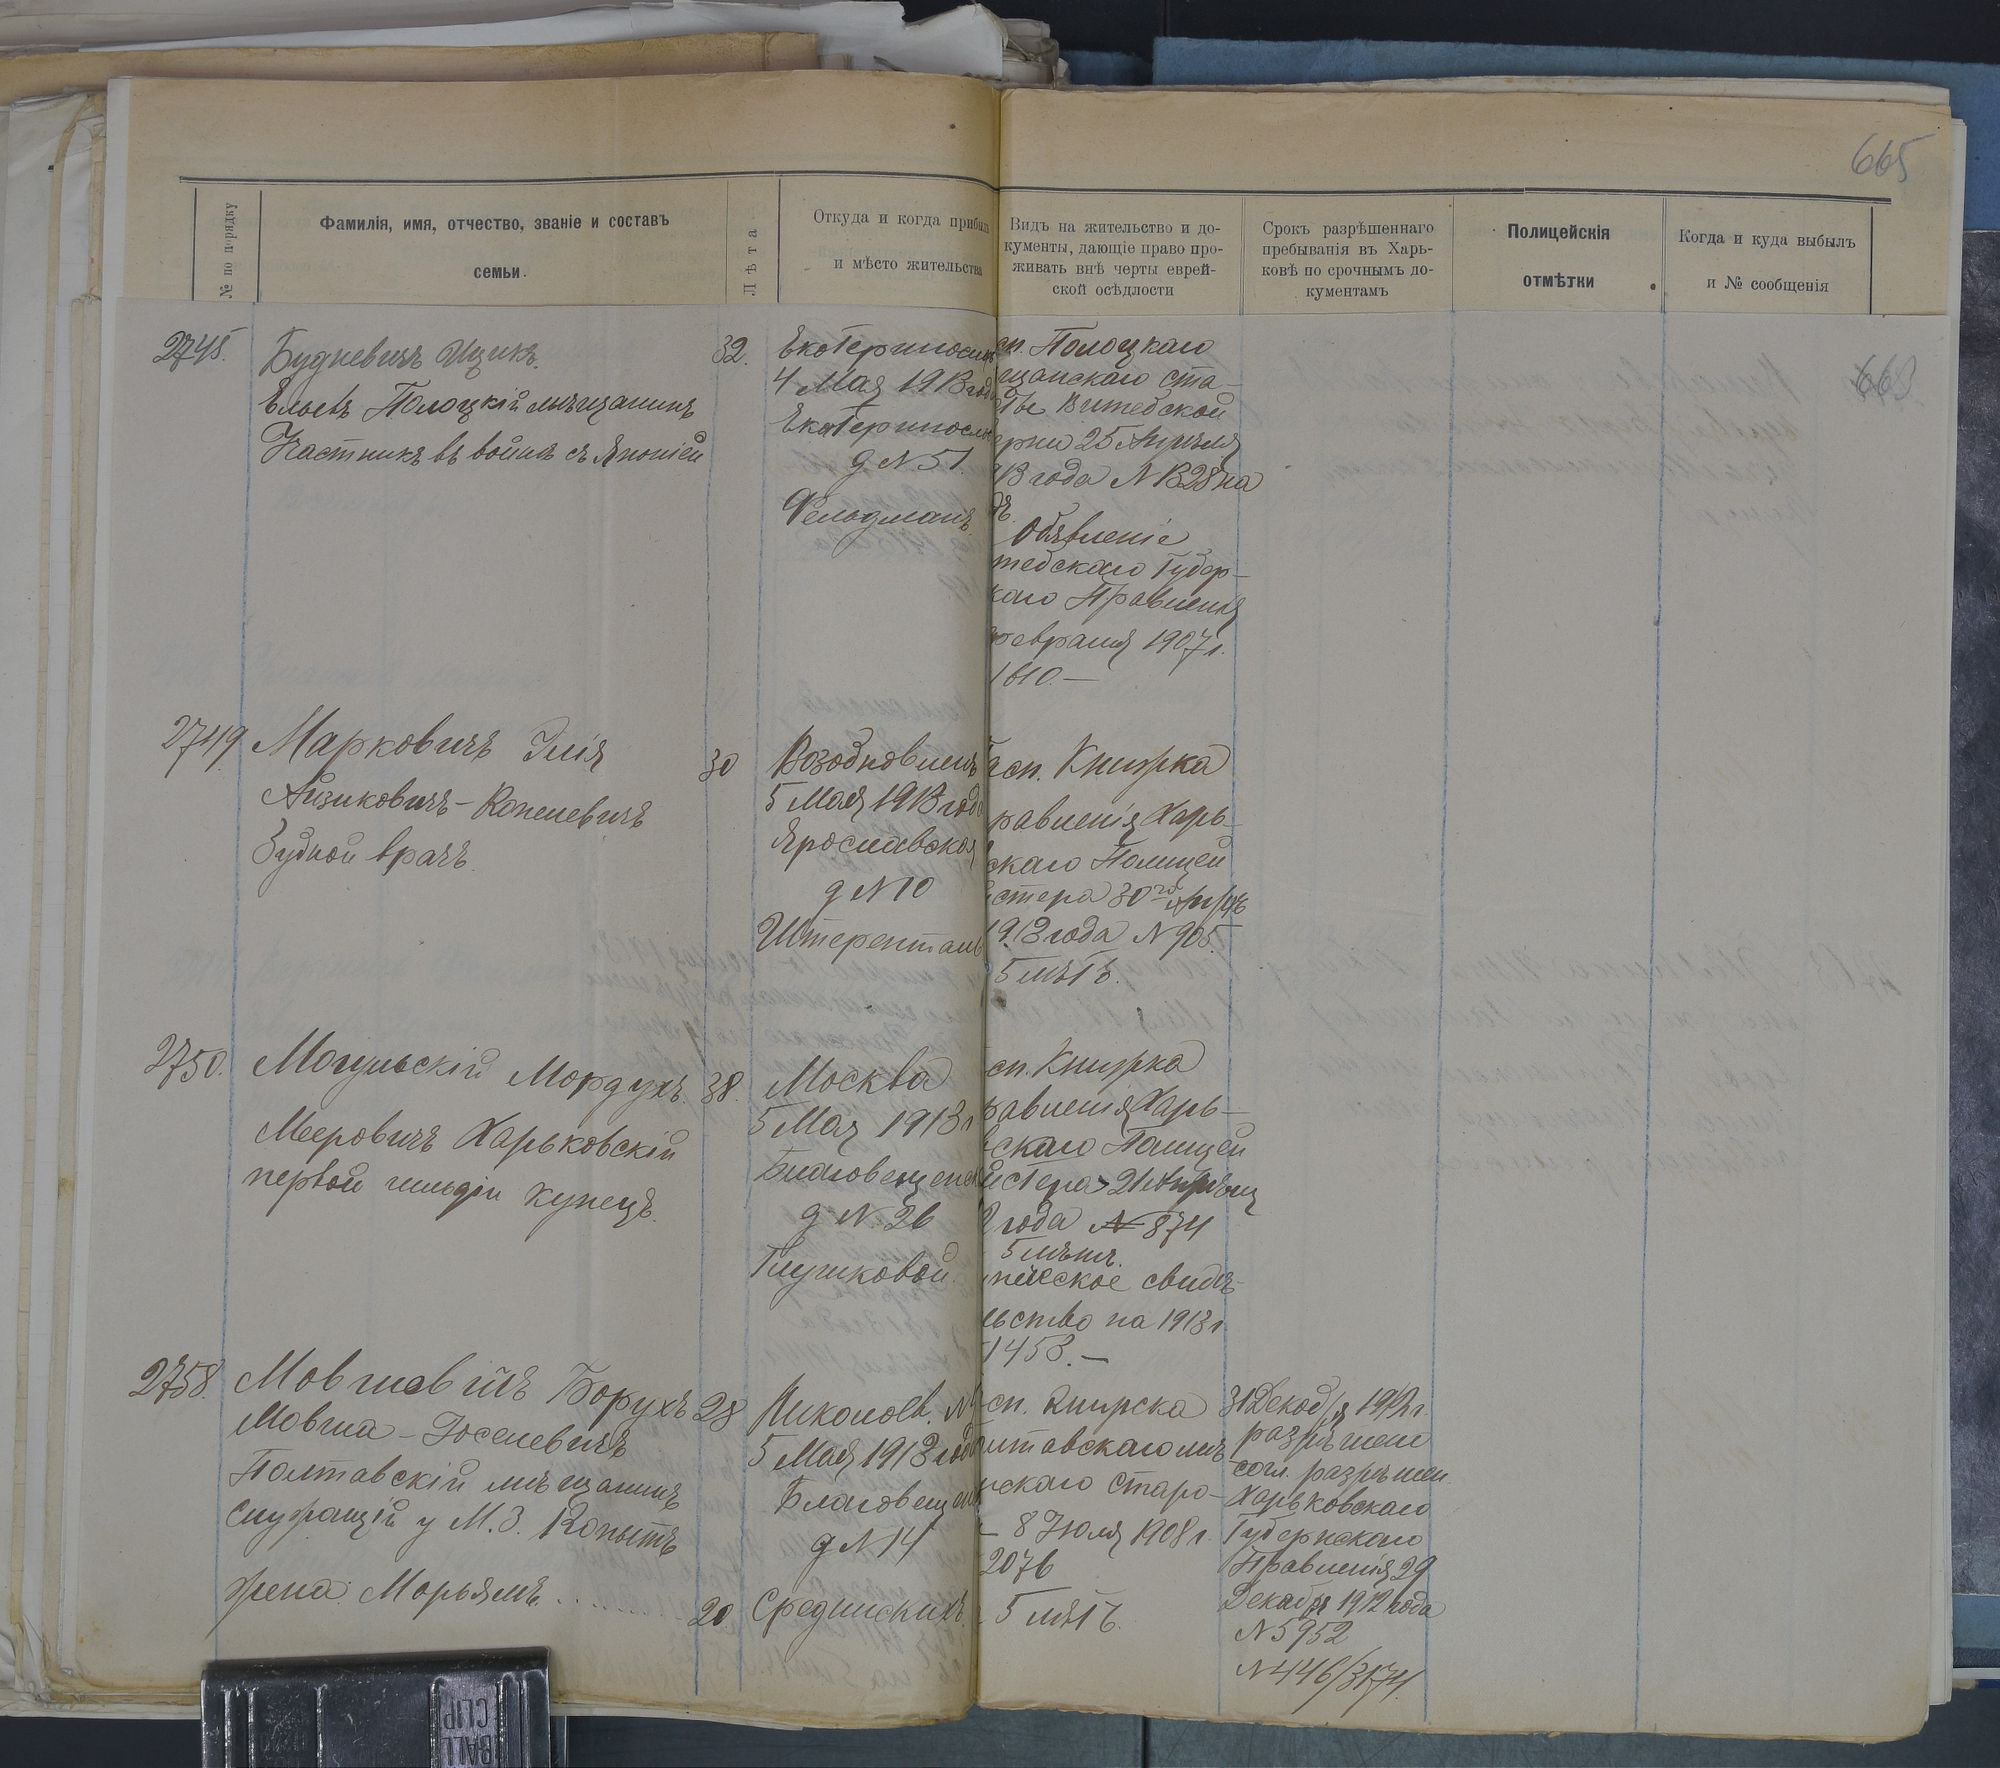 665
№ по порядку
Фамилія, имя, отчество, званіе и составъ
семьи.
Лѣта
Откуда и когда прибылъ
и мѣсто жительства
Видъ на жительство и до-
кументы, дающіе право про-
живать внѣ черты еврей-
ской осѣдлости
Срокъ разрѣшеннаго
пребыванія въ Харь-
ковѣ по срочнымъ до-
кументамъ
Полицейскія
отмѣтки
Когда и куда выбылъ
и № сообщенія
663
Будневичъ Ицикъ.
Ельевъ Полоцкій мѣщанинъ
Участникъ въ войнѣ съ Японіей
32.
Екатеринослав
4 Мая 1913 года
Екатеринослав
д N 51.
Фельдманъ
сп. Полоцкаго
щанскаго ста-
Витебской
ерніи 25 Апрѣля
13 года N 1328 на
дъ.
Объявленіе
тебскаго Губер-
каго Правленія
февраля 1907 г.
1610. —
2749
Марковичъ Элія
Айзиковичъ-Копелевичъ
Зубной врачъ.
30
Возобновленъ
5 Мая 1913 года
Ярославская
д N 10
Штеренталь
сп. Книжка
равленія Харь-
скаго Полицей
стера 30го Апр
1913 года N 905.
5 лѣтъ.
2750.
Могульскій Мордухъ.
Мееровичъ Харьковскій
первой гильдіи купецъ.
38.
Москва
5 Мая 1913 г
Благовещенск
д N. 26
Глушковой.
сп. Книжка
равленія Харь-
скаго Полицей
йстера 21 Апрѣля
года N 874
5 лѣтъ.
печеское свидѣ-
льство на 1913 г
1453. —
2758.
Мовшевичъ Борухъ
Мовша-Іоселевичъ
Полтавскій мѣщанинъ
служащій у М. З. Копытъ
жена: Марьямъ.
28
20.
Николаев.
5 Мая 1913 года
Благовещен
д N 14
Срединскихъ
сп. Книжка
лтавскаго мѣ
нскаго старо-
— 8 Іюля 1908 г.
2076
5 лѣтъ.
31 Декабря 1912 г.
разрѣшен
согл. разрѣшен.
Харьковскаго
Губернскаго
Правленія 29
Декабря 1912 года
N 5952
N 446/3174.
BALL
CLIP